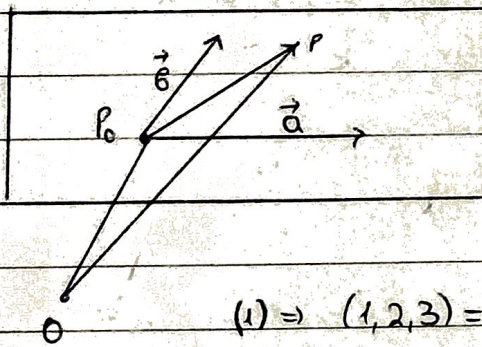 b⃗ P
P₀ a⃗
O
(1) ⇒ (1,2,3) =